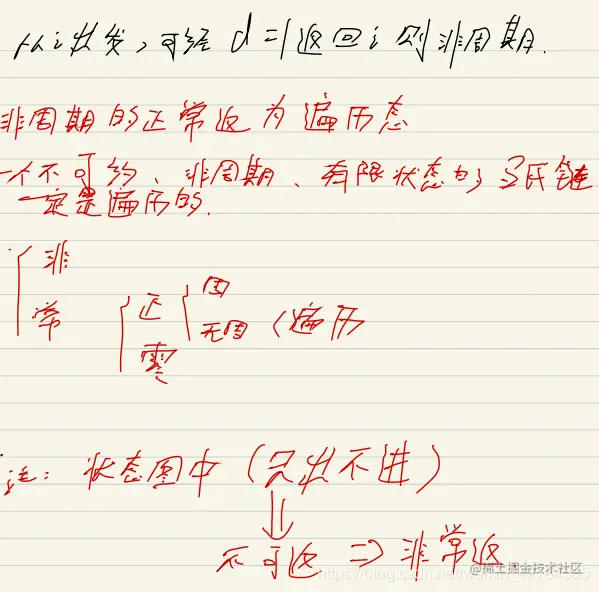 从i出发,可经 d=1返回i 则非周期.
非周期的正常返为遍历态
一个不可约、非周期、有限状态的马氏链
一定是遍历的.
非
常
正
零
周
无周(遍历
注: 状态图中(只出不进)
不可返 ⇒ 非常返
@稀土掘金技术社区